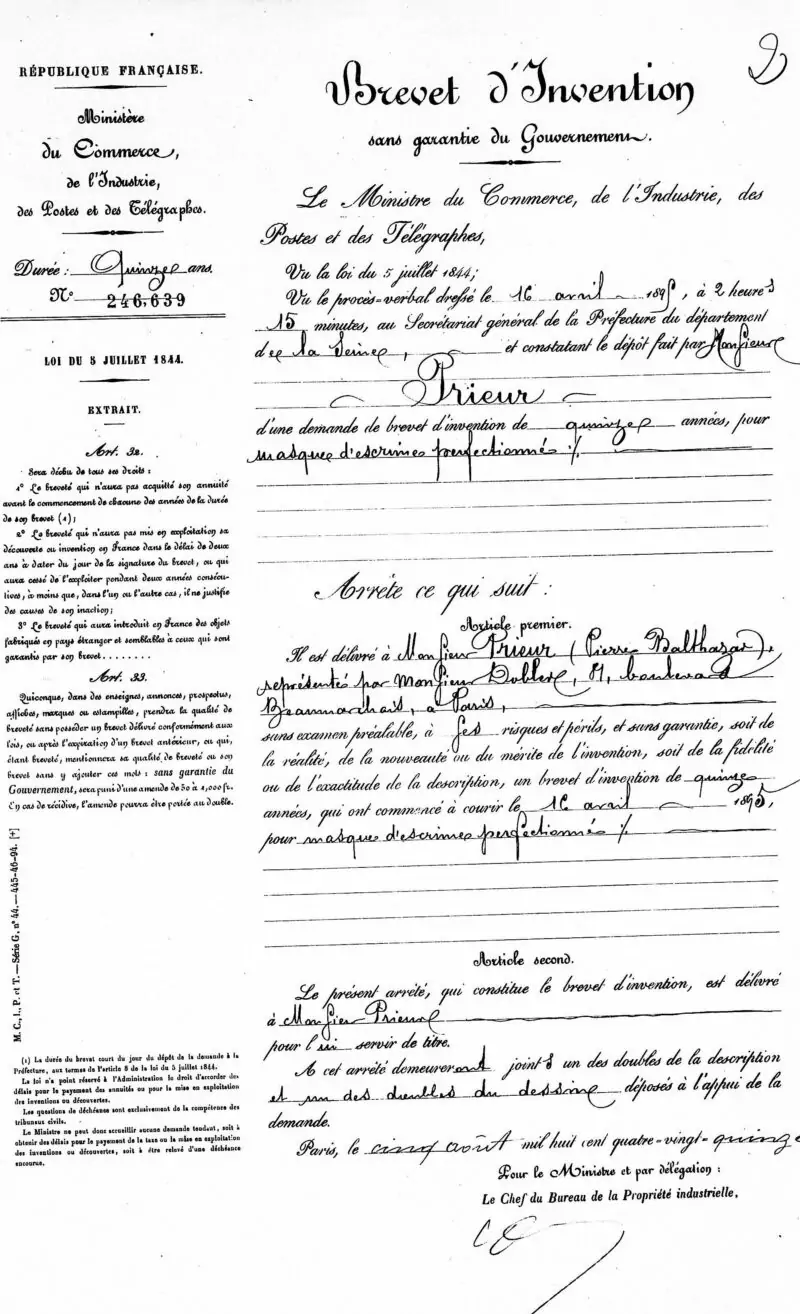 RÉPUBLIQUE FRANÇAISE.
Ministère
du Commerce,
de l'Industrie,
des Postes et des Télégraphes.
Durée : Quinze ans.
N° 246.639
LOI DU 5 JUILLET 1844.
EXTRAIT.
Art. 32.
Sera déchu de tous ses droits :
1° Le breveté qui n'aura pas acquitté son annuité
avant le commencement de chacune des années de la durée
de son brevet (1);
2° Le breveté qui n'aura pas mis en exploitation sa
découverte ou invention en France dans le délai de deux
ans à dater du jour de la signature du brevet, ou qui
aura cessé de l'exploiter pendant deux années consécu-
tives, à moins que, dans l'un ou l'autre cas, il ne justifie
des causes de son inaction;
3° Le breveté qui aura introduit en France des objets
fabriqués en pays étranger et semblables à ceux qui sont
garantis par son brevet........
Art. 33.
Quiconque, dans des enseignes, annonces, prospectus,
affiches, marques ou estampilles, prendra la qualité de
breveté sans posséder un brevet délivré conformément aux
lois, ou après l'expiration d'un brevet antérieur, ou qui,
étant breveté, mentionnera sa qualité de breveté ou son
brevet sans y ajouter ces mots : sans garantie du
Gouvernement, sera puni d'une amende de 50 à 1,000 fr.
En cas de récidive, l'amende pourra être portée au double.
M. C., I., P. et T. — Série G, n° 44. — 445-46-94. [†]
(1) La durée du brevet court du jour du dépôt de la demande à la
Préfecture, aux termes de l'article 8 de la loi du 5 juillet 1844.
La loi n'a point réservé à l'Administration le droit d'accorder des
délais pour le payement des annuités ou pour la mise en exploitation
des inventions ou découvertes.
Les questions de déchéance sont exclusivement de la compétence des
tribunaux civils.
Le Ministre ne peut donc accueillir aucune demande tendant, soit à
obtenir des délais pour le payement de la taxe ou la mise en exploitation
des inventions ou découvertes, soit à être relevé d'une déchéance
encourue.
2
Brevet d'Invention
sans garantie du Gouvernement.
Le Ministre du Commerce, de l'Industrie, des
Postes et des Télégraphes,
Vu la loi du 5 juillet 1844;
Vu le procès-verbal dressé le 16 avril 1895, à 2 heures
15 minutes, au Secrétariat général de la Préfecture du département
de la Seine, et constatant le dépôt fait par Monsieur
Prieur
d'une demande de brevet d'invention de quinze années, pour
masque d'escrime perfectionné ./.
Arrête ce qui suit :
Article premier.
Il est délivré à Monsieur Prieur (Pierre Balthazar),
représenté par Monsieur Dobler, boulevard
Beaumarchais, à Paris,
sans examen préalable, à ses risques et périls, et sans garantie, soit de
la réalité, de la nouveauté ou du mérite de l'invention, soit de la fidélité
ou de l'exactitude de la description, un brevet d'invention de quinze
années, qui ont commencé à courir le 16 avril 1895,
pour masque d'escrime perfectionné ./.
Article second.
Le présent arrêté, qui constitue le brevet d'invention, est délivré
à Monsieur Prieur
pour lui servir de titre.
A cet arrêté demeureront joints un des doubles de la description
et un des doubles du dessin déposés à l'appui de la
demande.
Paris, le cinq août mil huit cent quatre-vingt-quinze
Pour le Ministre et par délégation :
Le Chef du Bureau de la Propriété industrielle,